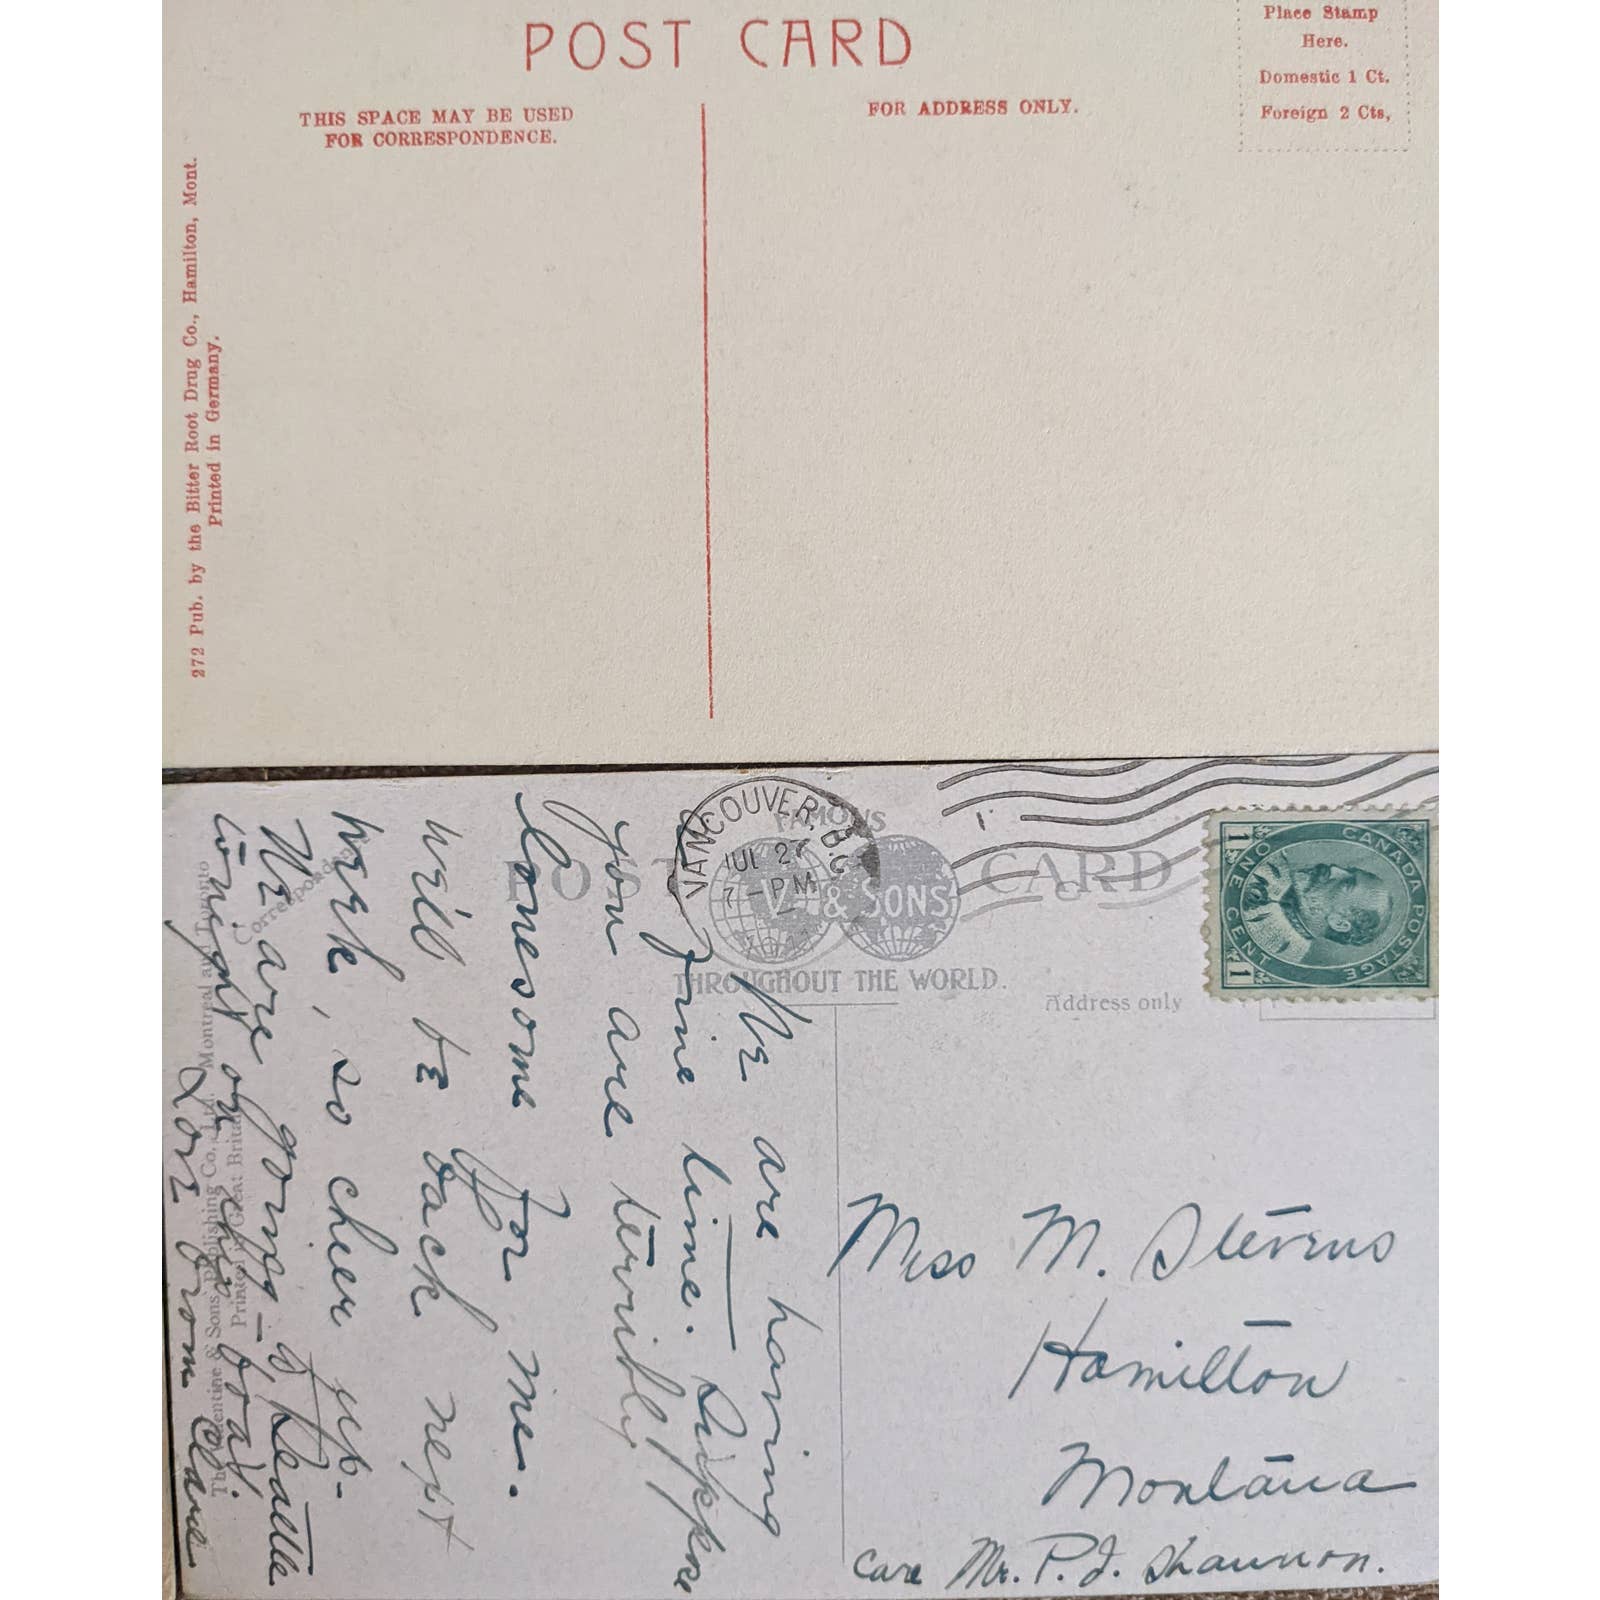 POST CARD
Place Stamp
Here.
Domestic 1 Ct.
Foreign 2 Cts,
THIS SPACE MAY BE USED
FOR CORRESPONDENCE.
FOR ADDRESS ONLY.
272 Pub. by the Bitter Root Drug Co., Hamilton, Mont.
Printed in Germany.
VANCOUVER, B.C.
JUL 27
7 - PM
FAMOUS
POST CARD
V & SONS
THROUGHOUT THE WORLD.
Correspond
Address only
CANADA POSTAGE
ONE CENT
1 1
We are having
fine time. Suppose
you are terribly
lonesome for me.
will be back next
week, so cheer up.
We are going to Seattle
tonight on the boat
Love from Clare
The Valentine & Sons Publishing Co., Ltd. Montreal and Toronto
Printed in Great Britain
Miss M. Stevens
Hamilton
Montana
Care Mr. P. J. Shannon.